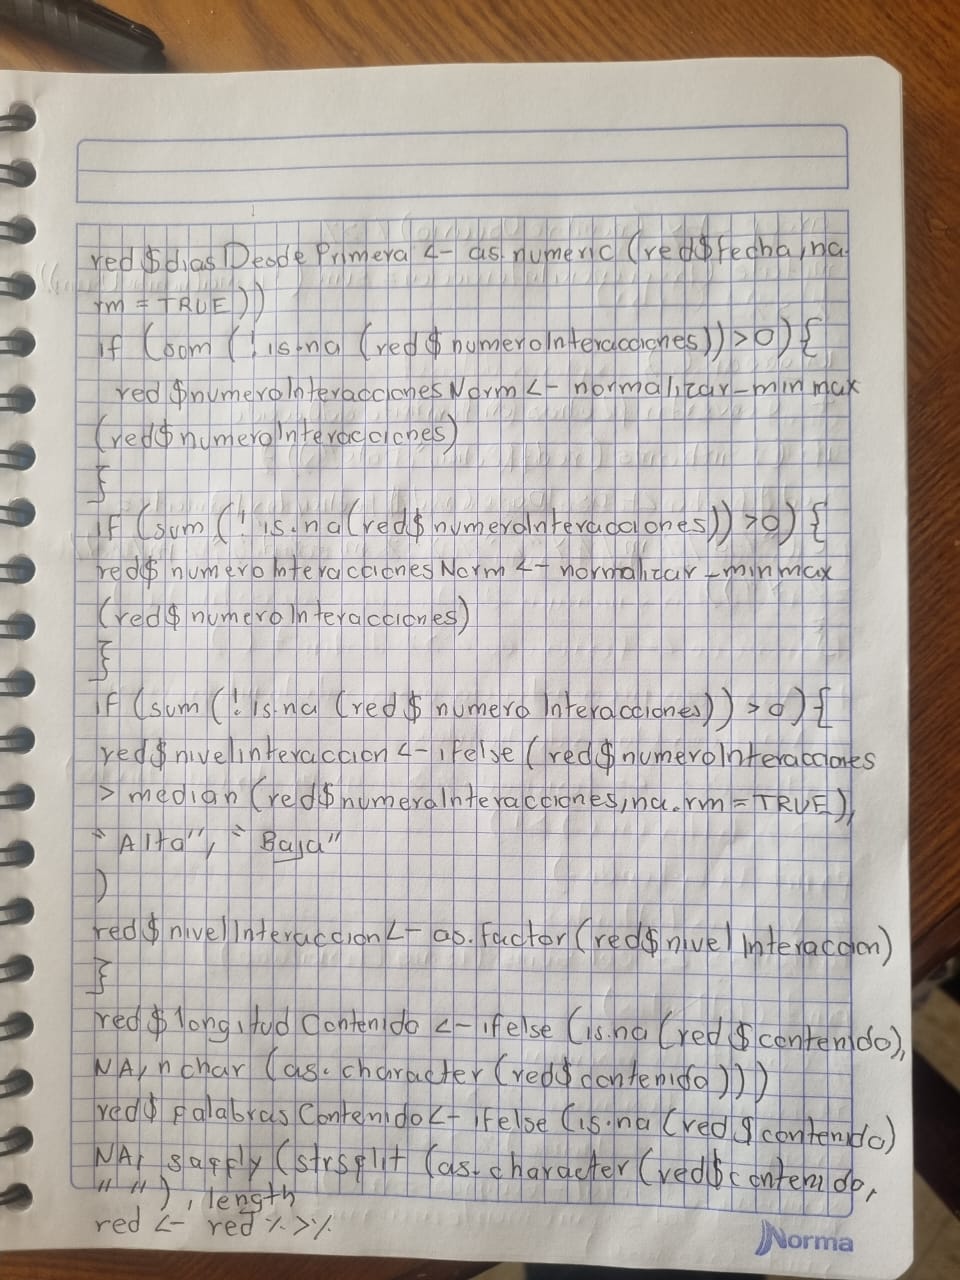 red$diasDesdePrimera <- as.numeric (red$fecha, na.
rm = TRUE))
if (sum (! is.na (red$numeroInteracciones)) >0) {
red$numeroInteraccionesNorm <- normalizar_minmax
(red$numeroInteracciones)
}
if (sum (! is.na(red$numeroInteracciones)) >0) {
red$numeroInteraccionesNorm <- normalizar_minmax
(red$numeroInteracciones)
}
if (sum (! is.na (red$numeroInteracciones)) >0) {
red$nivelinteraccion <- ifelse (red$numeroInteracciones
> median (red$numeroInteracciones, na.rm = TRUE),
"Alta", "Baja"
)
red$nivelInteraccion <- as.factor (red$nivelInteraccion)
}
red$longitudContenido <- ifelse (is.na (red$contenido),
NA, nchar (as.character (red$contenido)))
red$palabrasContenido <- ifelse (is.na (red$contenido)
NA, sapply (strsplit (as.character (red$contenido,
" "), length
red <- red %>%
Norma